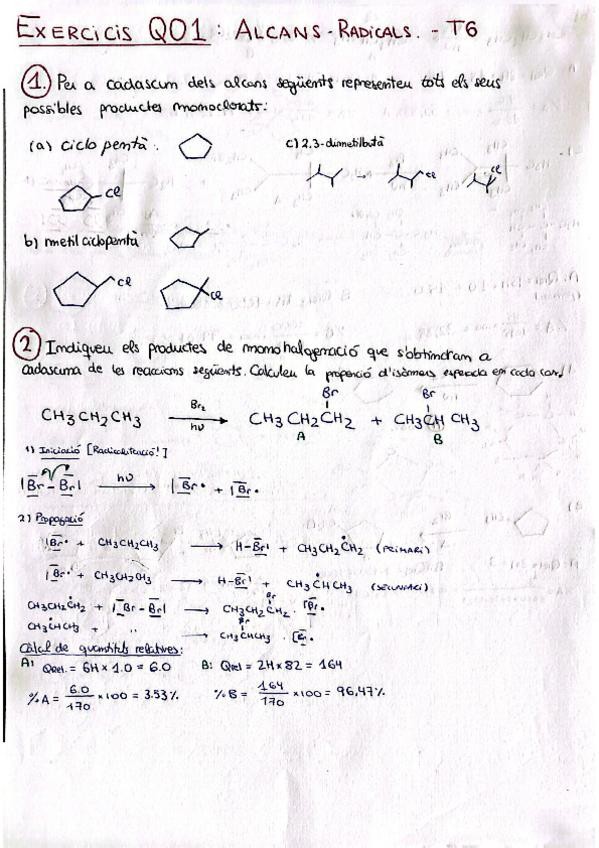 EXERCICIS QO1: ALCANS - RADICALS. - T6
1. Per a cadascum dels alcans següents representeu tots els seus
possibles productes monoclorats:
(a) ciclopentà.
c) 2,3-dimetilbutà
Cl
Cl
Cl
b) metilciclopentà
Cl
Cl
2 Indiqueu els productes de monohalogenació que s'obtindran a
cadascuna de les reaccions següents. Calculeu la proporció d'isòmers esperada en cada cas!
Br Br
CH3CH2CH3 Br2 hν CH3CH2CH2 + CH3CH CH3
A B
1) Iniciació
|Br-Br| hν |Br• + |Br•
2) Propagació
|Br• + CH3CH2CH3 → H-Br| + CH3CH2ĊH2 (PRIMARI)
|Br• + CH3CH2CH3 → H-Br| + CH3ĊHCH3 (SECUNDARI)
Br
CH3CH2ĊH2 + |Br-Br| → CH3CH2CH2 . |Br•
Br
CH3ĊHCH3 + " → CH3CHCH3 . |Br•
Càlcul de quantitats relatives:
A: Qrel. = 6H × 1.0 = 6.0 B: Qrel = 2H × 82 = 164
%A = 6.0/170 ×100 = 3.53% %B = 164/170 ×100 = 96,47%